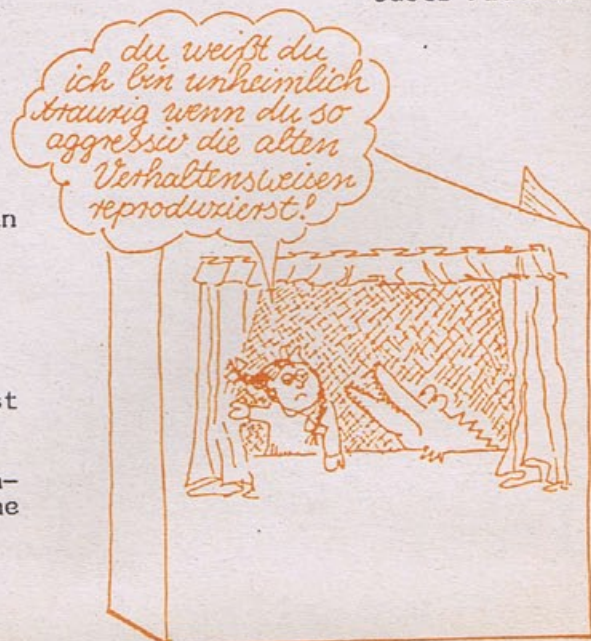 du weißt du
ich bin unheimlich
traurig wenn du so
aggressiv die alten
Verhaltensweisen
reproduzierst!
n
st
n-
ne